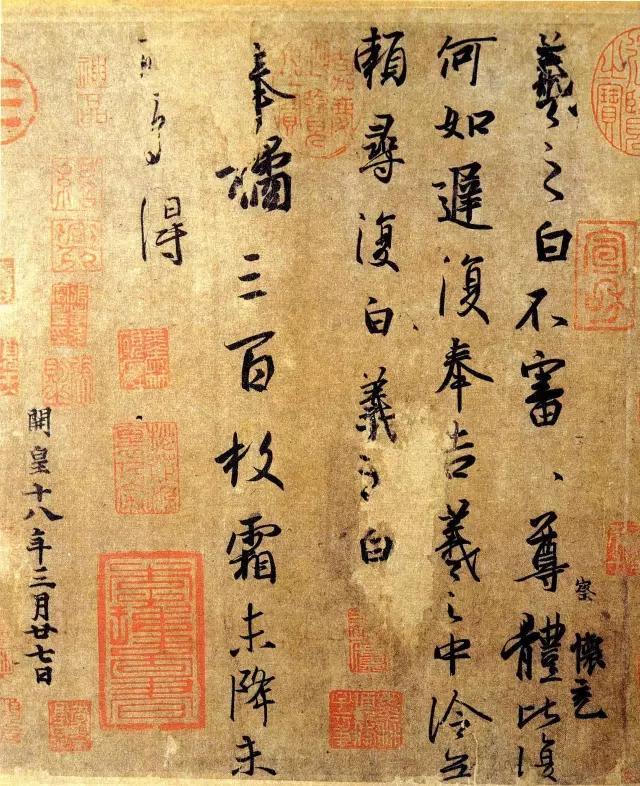 羲之白不審、尊體比復
察懷充
何如遲復奉告羲之中冷無
賴尋復白羲之白
奉橘三百枚霜未降未
可多得
開皇十八年三月廿七日
神品